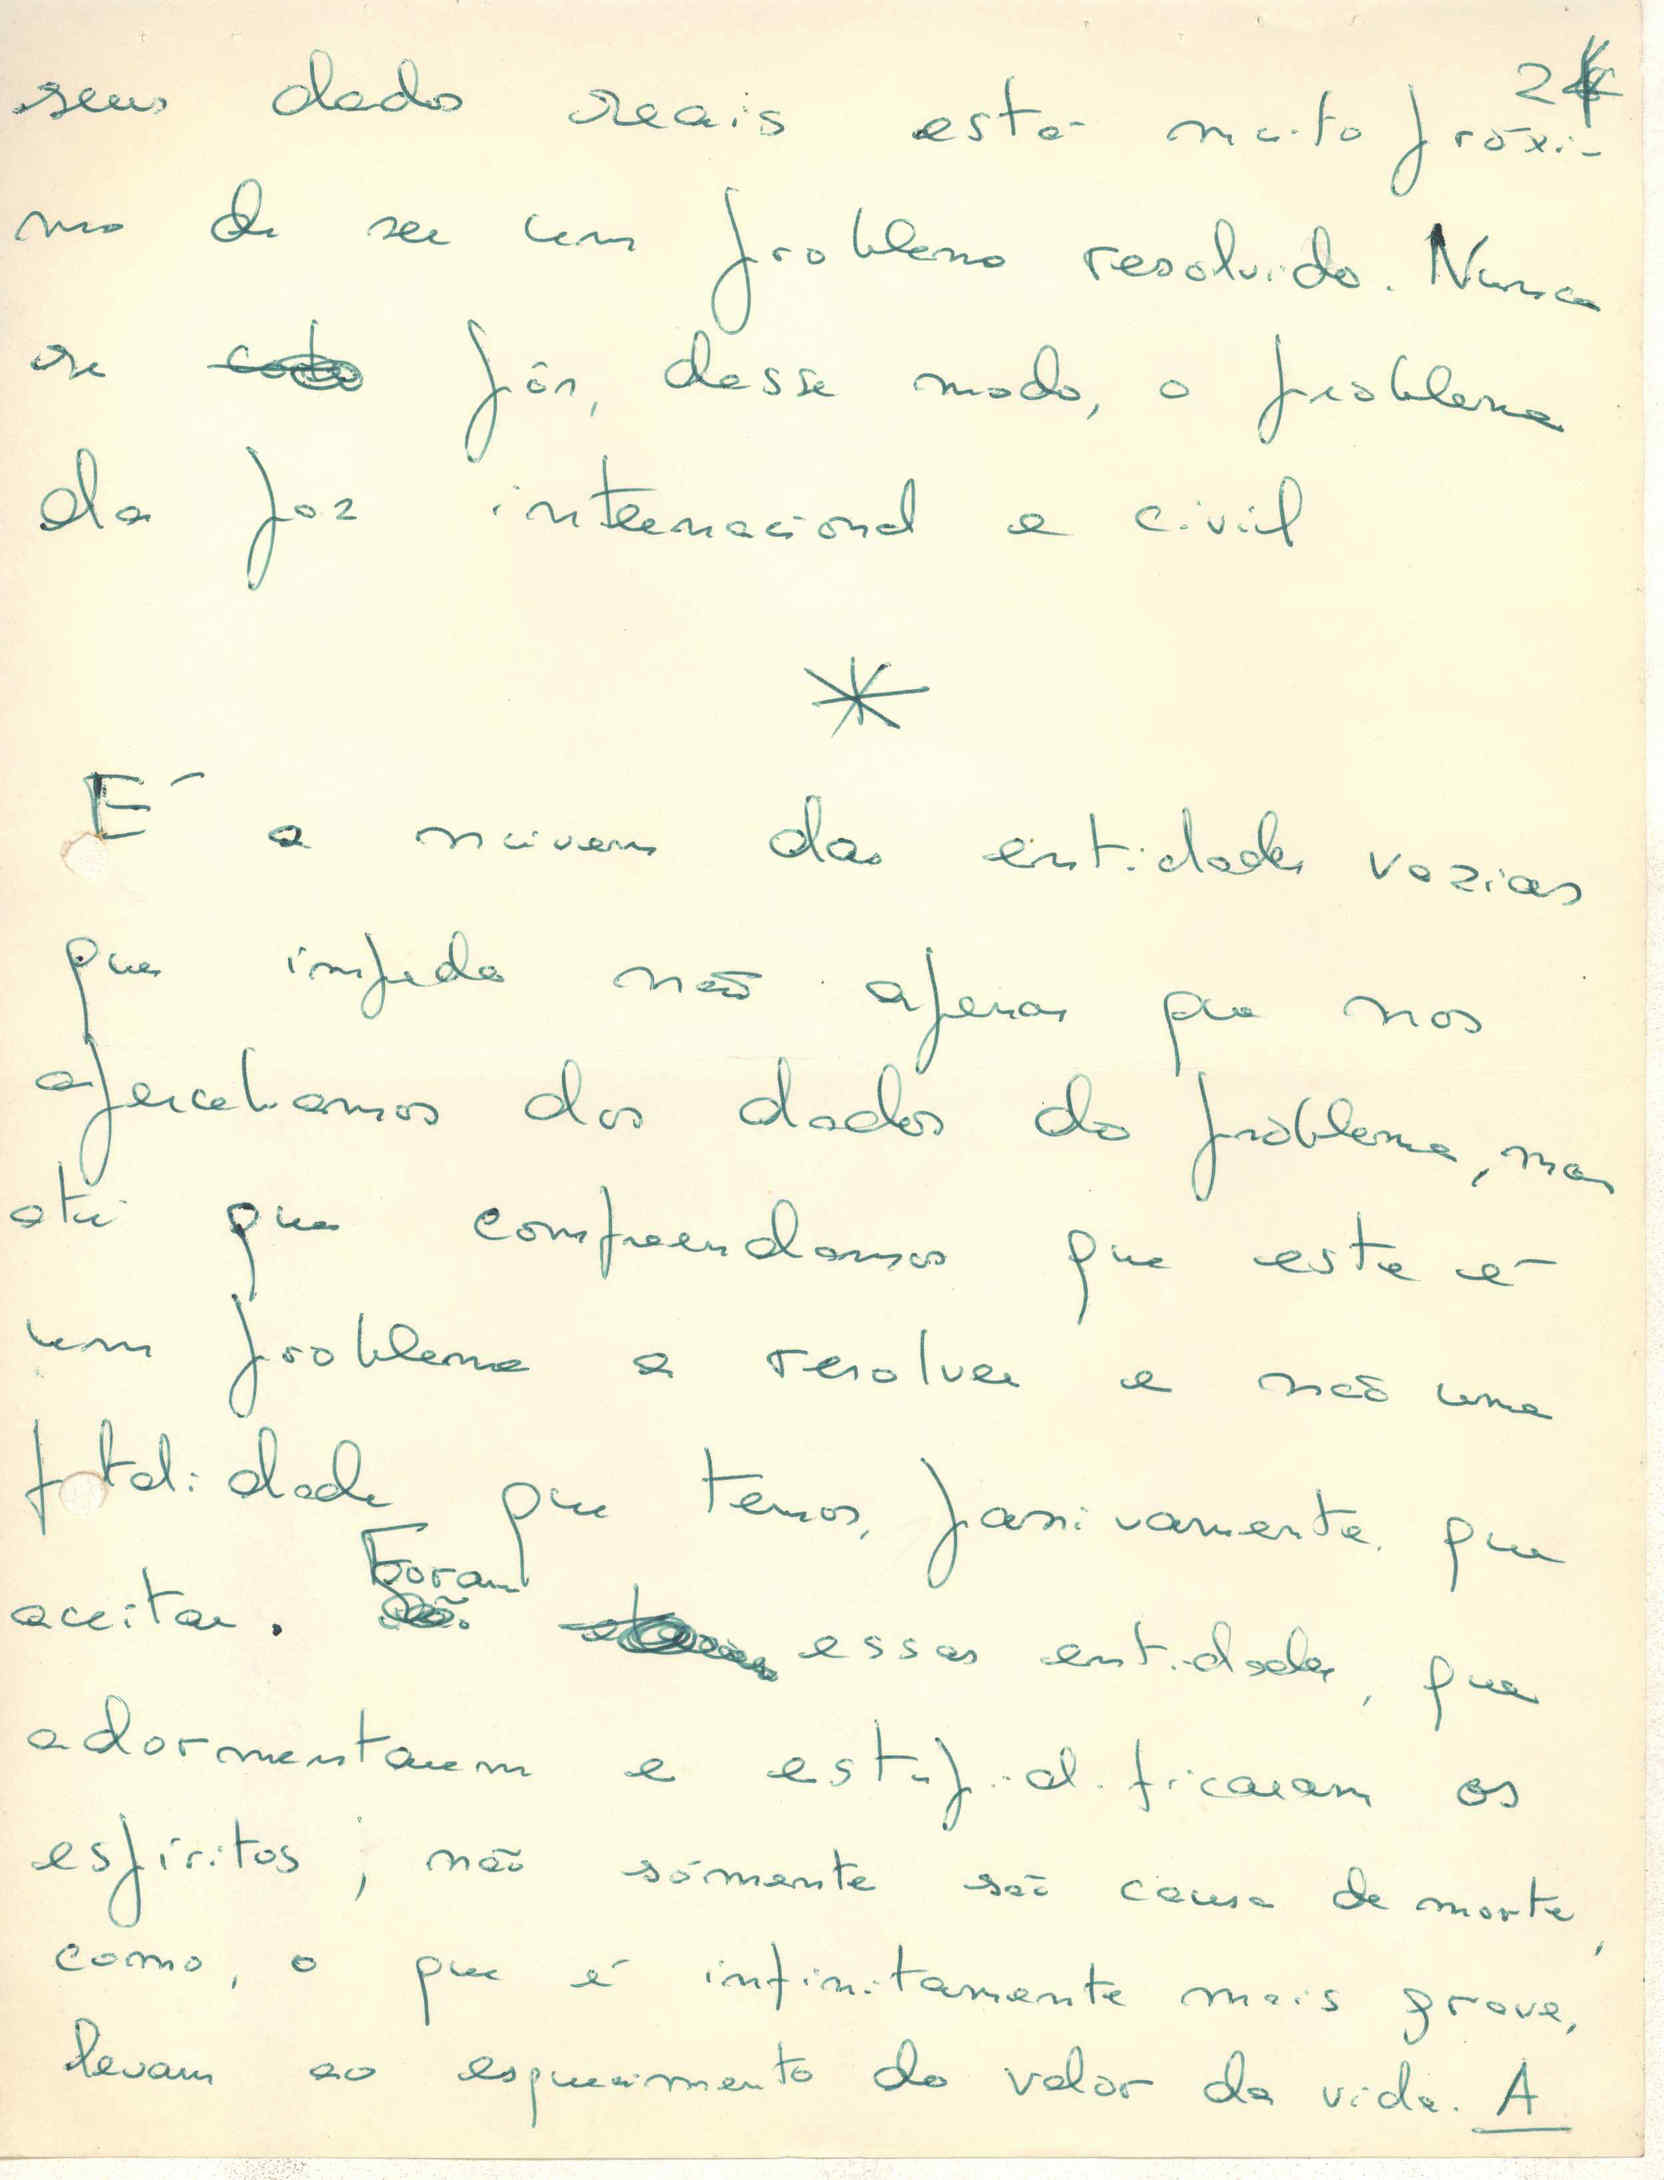 24
seus dados reais está muito próxi-
mo de ser um problema resolvido. Nunca
se pôs, desse modo, o problema
da paz internacional e civil
*
É a nuvem das entidades vazias
que impede não apenas que nos
apercebamos dos dados do problema, mas
até que compreendamos que este é
um problema a resolver e não uma
fatalidade que temos, passivamente, que
aceitar. Foram essas entidades, que
adormentaram e estupidificaram os
espíritos; não sòmente são causa de morte,
como, o que é infinitamente mais grave,
levam ao esquecimento do valor da vida. A